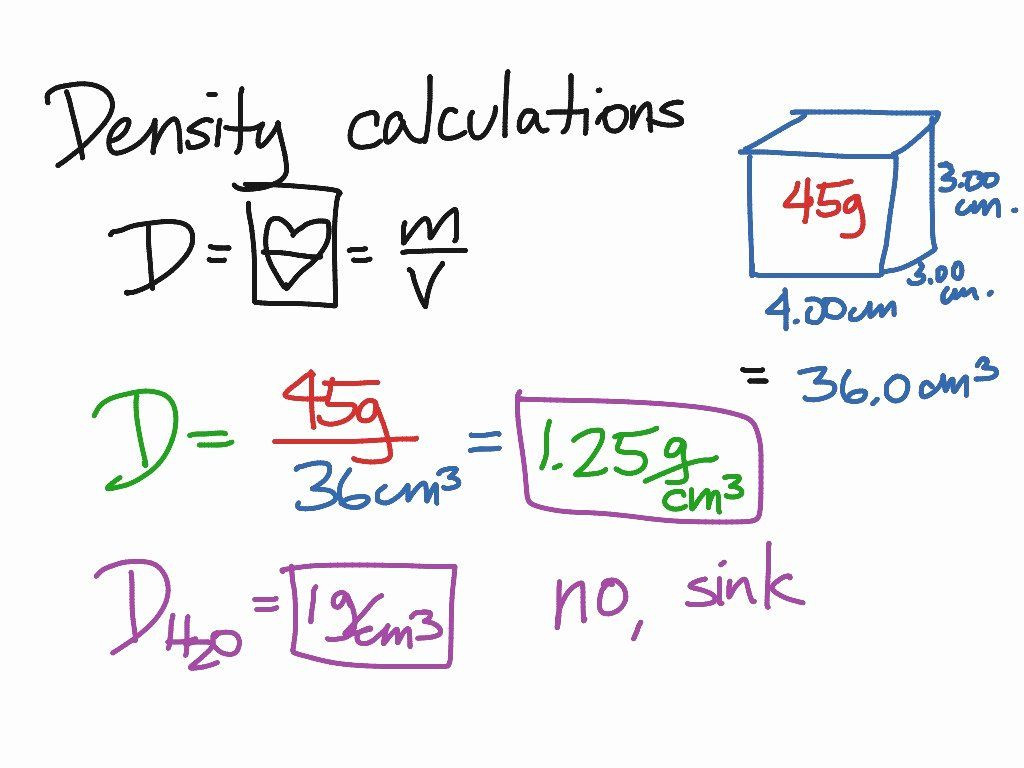 Density calculations
D = ♡ = m/v
45g
3.00 cm.
3.00 cm.
4.00 cm
= 36.0 cm³
D = 45g/36 cm³ = 1.25 g/cm³
D_H₂O = 1 g/cm³ no, sink